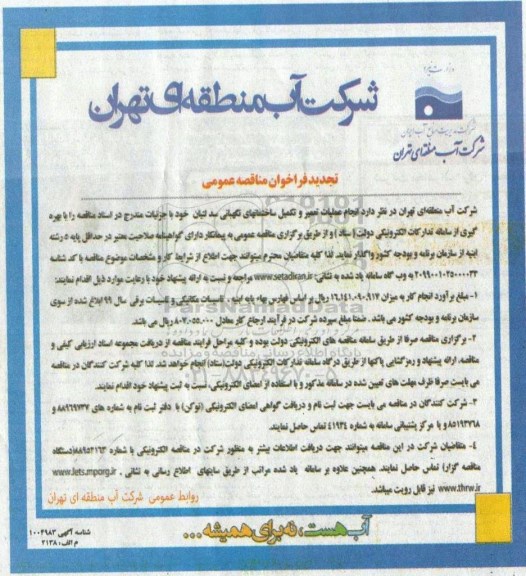 وزارت نیرو
شرکت مدیریت منابع آب ایران
شرکت آب منطقه‌ای تهران
شرکت آب منطقه‌ای تهران
تجدید فراخوان مناقصه عمومی
شرکت آب منطقه‌ای تهران در نظر دارد انجام عملیات تعمیر و تکمیل ساختمانهای نگهبانی سد لتیان خود با جزئیات مندرج در اسناد مناقصه را با بهره
گیری از سامانه تدارکات الکترونیکی دولت (ستاد) و از طریق برگزاری مناقصه عمومی به پیمانکار دارای گواهینامه صلاحیت معتبر در حداقل پایه ۵ رشته
ابنیه از سازمان برنامه و بودجه کشور واگذار نماید. لذا کلیه متقاضیان محترم میتوانند جهت اطلاع از شرایط کار و مشخصات موضوع مناقصه با کد شناسه
۲۰۹۹۰۰۱۰۲۵۰۰۰۰۳۳ به وب گاه سامانه یاد شده به نشانی: www.setadiran.ir مراجعه و نسبت به ارائه پیشنهاد خود با رعایت موارد ذیل اقدام نمایند:
۱- مبلغ برآورد انجام کار به میزان ۱۶،۱۴۱،۰۹۰،۹۱۷ ریال بر اساس فهارس بهاء پایه ابنیه، تاسیسات مکانیکی و تاسیسات برقی سال ۹۹ ابلاغ شده از سوی
سازمان برنامه و بودجه کشور می باشد. ضمنا مبلغ سپرده شرکت در فرآیند ارجاع کار معادل ۸۰۷،۰۵۵،۰۰۰ ریال می باشد.
۲- برگزاری مناقصه صرفا از طریق سامانه مناقصه های الکترونیکی دولت بوده و کلیه مراحل فرایند مناقصه از دریافت مجموعه اسناد ارزیابی کیفی و
مناقصه، ارائه پیشنهاد و رمزگشایی پاکتها از طریق درگاه سامانه تدارکات الکترونیکی دولت(ستاد) انجام خواهد شد. لذا کلیه شرکت کنندگان در مناقصه
می بایست صرفا ظرف مهلت های تعیین شده در سامانه مذکور و با استفاده از امضای الکترونیکی، نسبت به ثبت پیشنهاد خود اقدام نمایند.
۳- شرکت کنندگان در مناقصه می بایست جهت ثبت نام و دریافت گواهی امضای الکترونیکی (توکن) با دفتر ثبت نام به شماره های ۸۸۹۶۹۷۳۷ و
۸۵۱۹۳۷۶۸ و یا مرکز پشتیبانی سامانه به شماره ۴۱۹۳۴ تماس حاصل نمایند.
۴- متقاضیان شرکت در این مناقصه میتوانند جهت دریافت اطلاعات بیشتر به منظور شرکت در مناقصه الکترونیکی با شماره ۸۸۹۵۲۱۶۳(دستگاه
مناقصه گزار) تماس حاصل نمایند. همچنین علاوه بر سامانه یاد شده مراتب از طریق سایتهای اطلاع رسانی به نشانی، www.iets.mporg.ir
www.thrw.ir نیز قابل رویت میباشد.
روابط عمومی شرکت آب منطقه ای تهران
آب هست، نه برای همیشه ...
شناسه آگهی ۱۰۰۴۹۸۳
م الف: ۲۱۳۸
ParsNamadData
پایگاه اطلاع رسانی مناقصه و مزایده